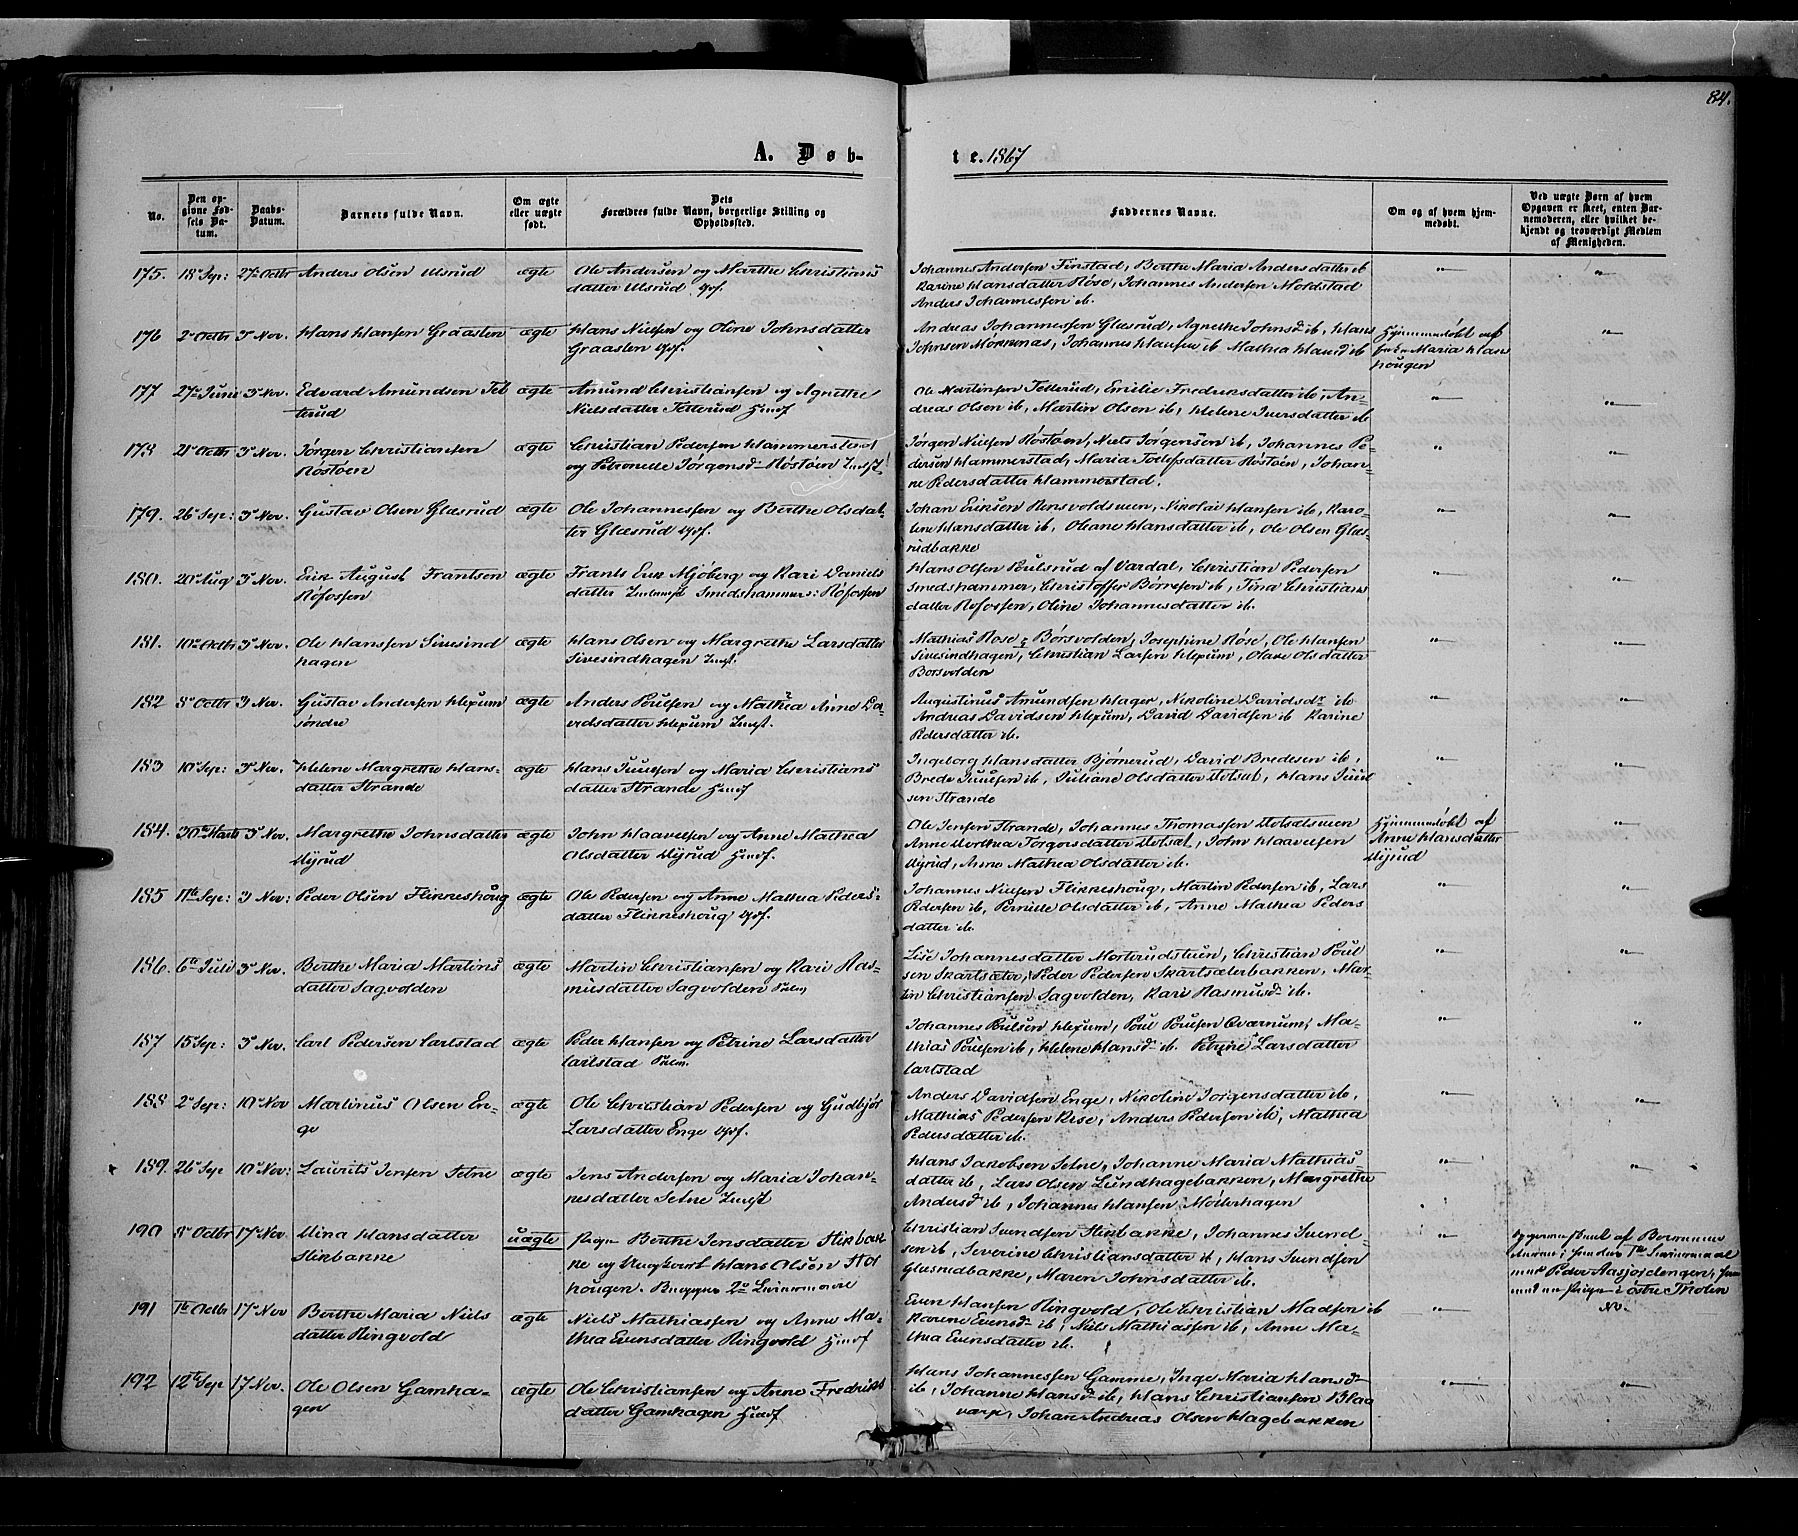 84.
A. Døb-
te. 1867
No.
Den op-
givne Fød-
sels Da-
tum.
Daabs-
Datum.
Barnets fulde Navn.
Om ægte
eller uægte
født.
Dets
Forældres fulde Navn, borgerlige Stilling og
Opholdssted.
Faddernes Navne.
Om og af hvem hjem-
medøbt.
Ved uægte Børn af hvem
Opgaven er skeet, enten Bar-
nemoderen, eller hvilket be-
kjendt og troværdigt Medlem
af Menigheden.
175. 18 Sep: 27 Octbr Anders Olsen Ulsrud ægte Ole Andersen og Marthe Christians
datter Ulsrud
Johannes Andersen Finstad, Berthe Maria Andersdatter ib
Karine Hansdatter Röse, Johannes Andersen Moldstad
Anders Johannessen ib.
176 2 Octbr 3 Nov. Hans Hansen Graasten ægte Hans Nielsen og Oline Johnsdatter
Graasten
Andreas Johannessen Glæsrud, Agnethe Johnsd ib, Hans
Johnsen Mörkenas, Johannes Hansen ib Mathea Hansd ib
Hjemmedøbt af
Maria Hans
hougen
177 27 Juni 3 Nov. Edvard Amundsen Tet
terud ægte Amund Christiansen og Agnethe
Nielsdatter Tetterud
Ole Martinsen Tetterud, Emilie Fredriksdatter ib, An-
dreas Olsen ib, Martin Olsen ib, Helene Iversdatter ib
178 21 Octbr 3 Nov. Jörgen Christiansen
Röstöen ægte Christian Pedersen Hammerstad
og Petronelle Jörgensd Röstöen
Jörgen Nielsen Röstöen, Niels Jörgensen ib, Johannes Pe-
dersen Hammerstad, Maria Tollefsdatter Röstöen, Johan-
ne Pedersdatter Hammerstad.
179. 26 Sep: 3 Nov. Gustav Olsen Glæsrud ægte Ole Johannessen og Berthe Olsdat-
ter Glæsrud
Johan Eriksen Rensvoldseien, Nikolai Hansen ib, Karo-
line Hansdatter ib, Oliane Hansdatter ib, Ole Olsen Glæs-
rudbakke
180. 20 Aug 3 Nov. Erik August Frantsen
Röfossen ægte Frants Erik Mjöberg og Kari Daniels
datter Smedshammer: Röfossen
Hans Olsen Pulsrud af Vardal, Christian Pedersen
Smedshammer, Christoffer Börresen ib, Tina Christians
datter Röfossen, Oline Johannesdatter ib.
181. 10 Octbr 3 Nov. Ole Hanssen Sivesind
hagen ægte Hans Olsen og Margrethe Larsdatter
Sivesindhagen
Mathias Rose Börsvolden, Josephine Röse, Ole Hansen
Sivesindhagen, Christian Larsen Hexum, Olave Olsdatter
Borsvolden
182 8 Octbr 3 Nov. Gustav Andersen Hexum
söndre ægte Anders Poulsen og Mathea Anne Da-
vidsdatter Hexum
Augustinus Amundsen Hager, Nikoline Davidsdr ib
Andreas Davidsen Hexum, David Davidsen ib Karine
Pedersdatter ib.
183 10 Sep: 3 Nov. Helene Margrethe Hans-
datter Strande ægte Hans Juulsen og Maria Christians
datter Strande
Ingeborg Hansdatter Bjørnerud, David Bredesen ib,
Brede Juulsen ib, Juliane Olsdatter, Hans Juul
sen Strande
184. 30 Marts 3 Nov. Margrethe Johnsdatter
Myrud ægte John Haavelsen og Anne Mathea
Olsdatter Myrud
Ole Jensen Strande, Johannes Thomassen
Anne Dorthea Torgersdatter, John Haavelsen
Myrud, Anne Mathea Olsdatter ib.
Hjemmedøbt af
Anne Hansdatter
Myrud
185 11te Sep: 3 Nov: Peder Olsen Flikkeshoug ægte Ole Pedersen og Anne Mathea Peders-
datter Flikkeshoug
Johannes Nielsen Flikkeshoug, Martin Pedersen ib, Lars
Pedersen ib, Pernille Olsdatter ib, Anne Mathea Peders
datter ib.
186. 6te Juli 3 Nov. Berthe Maria Martins
datter Sagvolden ægte Martin Christiansen og Kari Ras-
musdatter Sagvolden
Lise Johannesdatter Morterudstuen, Christian Poul
sen Skartsæter, Peder Pedersen Skartsæterbakken, Mar-
tin Christiansen Sagvolden, Kari Rasmusd ib.
187 15 Sep: 3 Nov. Carl Pedersen Carlstad ægte Peder Hansen og Petrine Larsdatter
Carlstad
Johannes Pulsen Hexum, Poul Poulsen Qværnum, Ma-
thias Poulsen ib, Helene Hansd ib. Petrine Larsdatter
Carlstad
188 2 Sep: 10 Nov Martinus Olsen En-
ge ægte Ole Christian Pedersen og Gudbjör
Larsdatter Enge
Anders Davidsen Enge, Nikoline Jorgensdatter ib,
Mathias Pedersen Rise, Anders Pedersen ib, Mathea
Pedersdatter ib.
189. 26 Sep 10 Nov: Laurits Jensen Setne ægte Jens Andersen og Maria Johan-
nesdatter Setne
Hans Jakobsen Setne, Johanne Maria Mathias-
datter ib, Lars Olsen Lundhagebakken, Margrethe
Andersd ib, Johannes Hansen Möllerhagen
190 8 Octbr 17 Nov. Mina Hansdatter
Stikbakke uægte Pigen Berthe Jensdatter Stikbak
ke og Ungkarl Hans Olsen Hol
hougen. Begges 2 Leiermaal
Christian Svendsen Stikbakke, Johannes Svend-
sen ib, Severine Christiansdatter ib, Hans Svendsen
Glæsrudbakke, Maren Johnsdatter ib.
af Barnemo
Leiermaal
Peder
191 1te Octbr 17 Nov Berthe Maria Niels
datter Ringvold ægte Niels Mathiassen og Anne Ma-
thea Evensdatter Ringvold
Even Hansen Ringvold, Ole Christian Madsen ib
Karene Evensd ib, Niels Mathiassen ib, Anne Ma-
thea Evensdatter ib.
192 12te Sep 17 Nov. Ole Olsen Gamha-
gen ægte Ole Christiansen og Anne Fredriks
datter Gamhagen
Hans Johannessen Gamme, Inge Maria Hansd
ib, Johanne Hansd ib, Hans Christiansen Blaa
varp, Johan Andreas Olsen Hagebakken